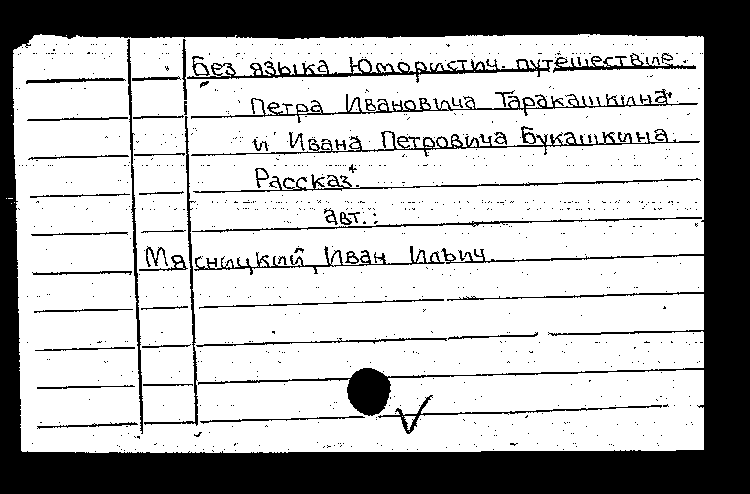 Без языка. Юмористич. путешествие.
Петра Ивановича Таракашкина
и Ивана Петровича Букашкина.
Рассказ.
авт.:
Мясницкий, Иван Ильич.